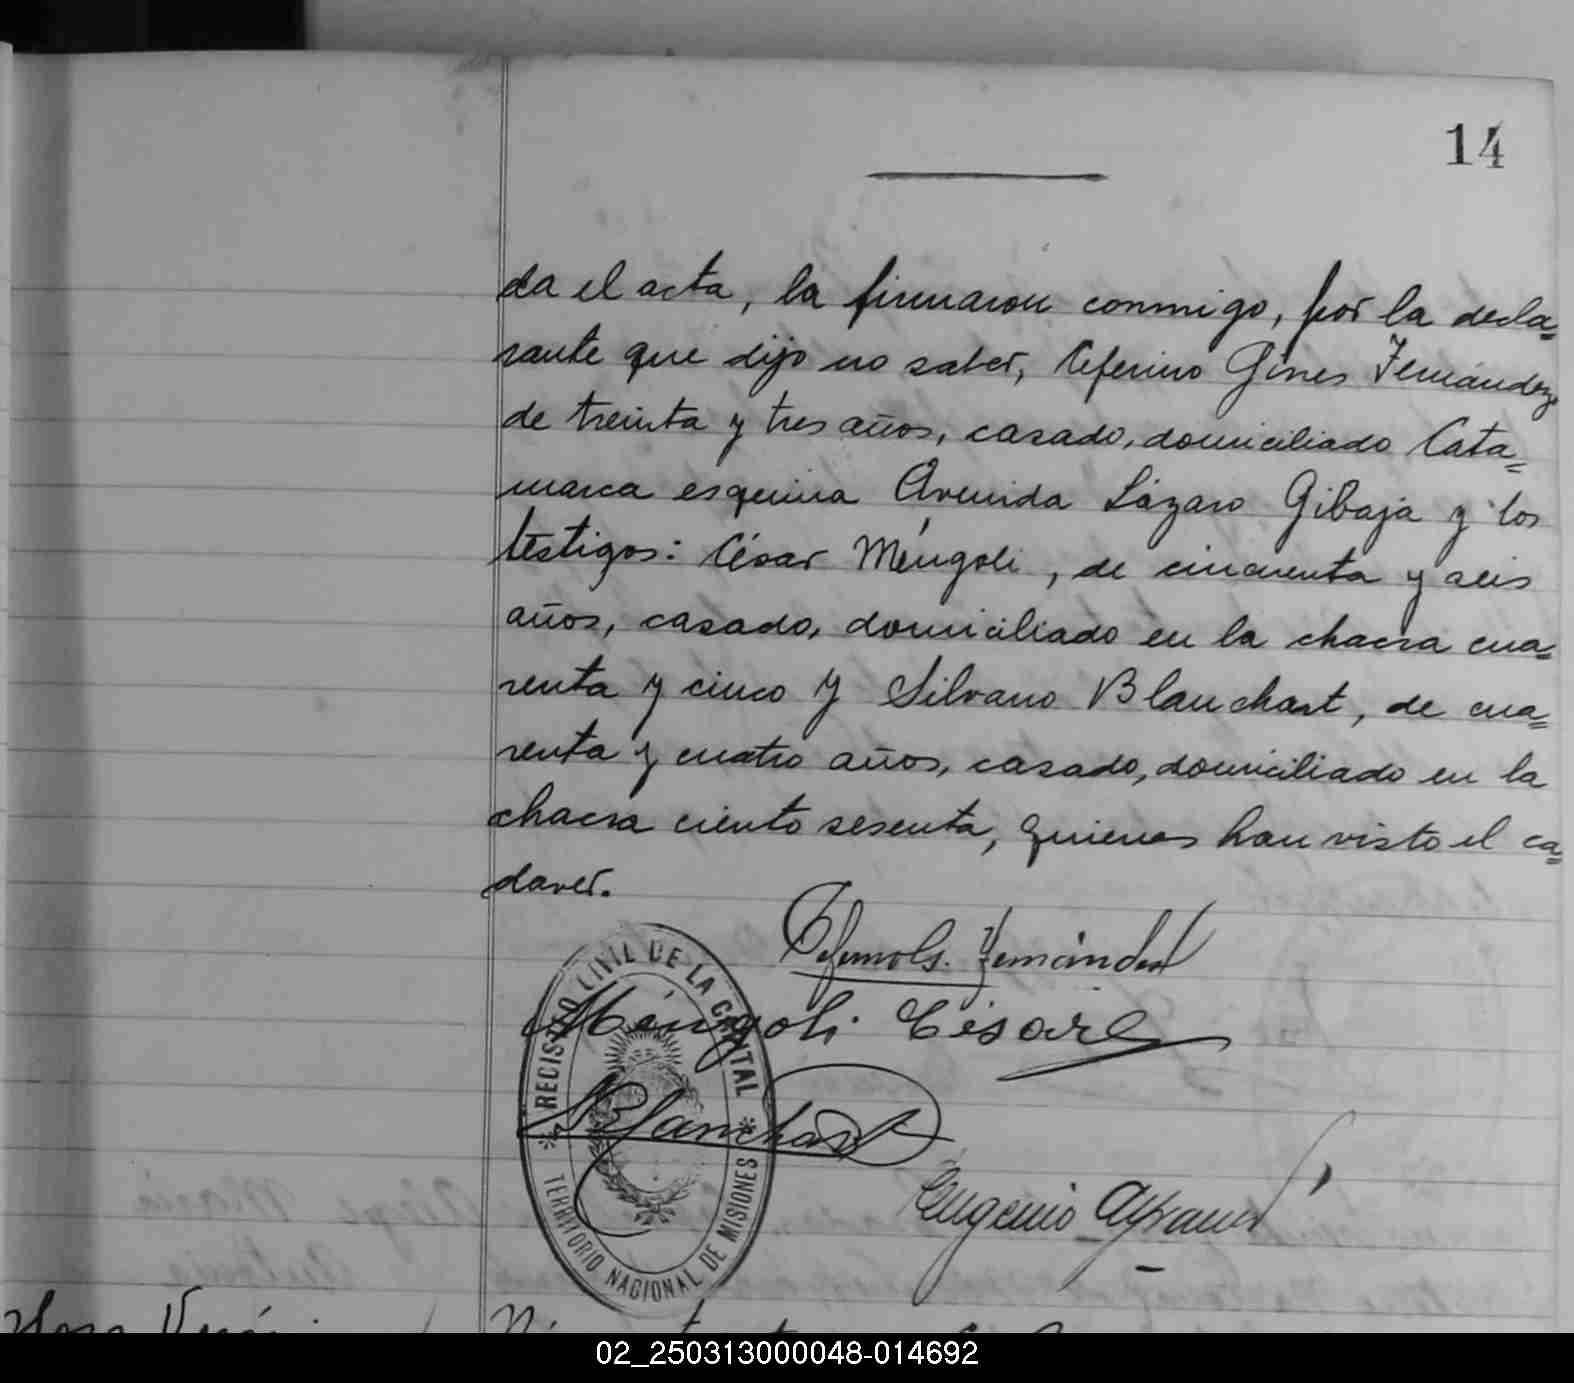 14
da el acta, la firmaron conmigo, por la decla=
rante que dijo no saber, Ceferino Gines Fernández
de treinta y tres años, casado, domiciliado Cata=
marca esquina Avenida Lázaro Gibaja y los
testigos: César Méngoli, de cincuenta y seis
años, casado, domiciliado en la chacra cua=
renta y cinco y Silvano Blanchart, de cua=
renta y cuatro años, casado, domiciliado en la
chacra ciento sesenta, quienes han visto el ca=
daver.
Ceferino G. Fernández
Méngoli César
Blanchart
Eugenio
REGISTRO CIVIL DE LA CAPITAL
TERRITORIO NACIONAL DE MISIONES
02_250313000048-014692